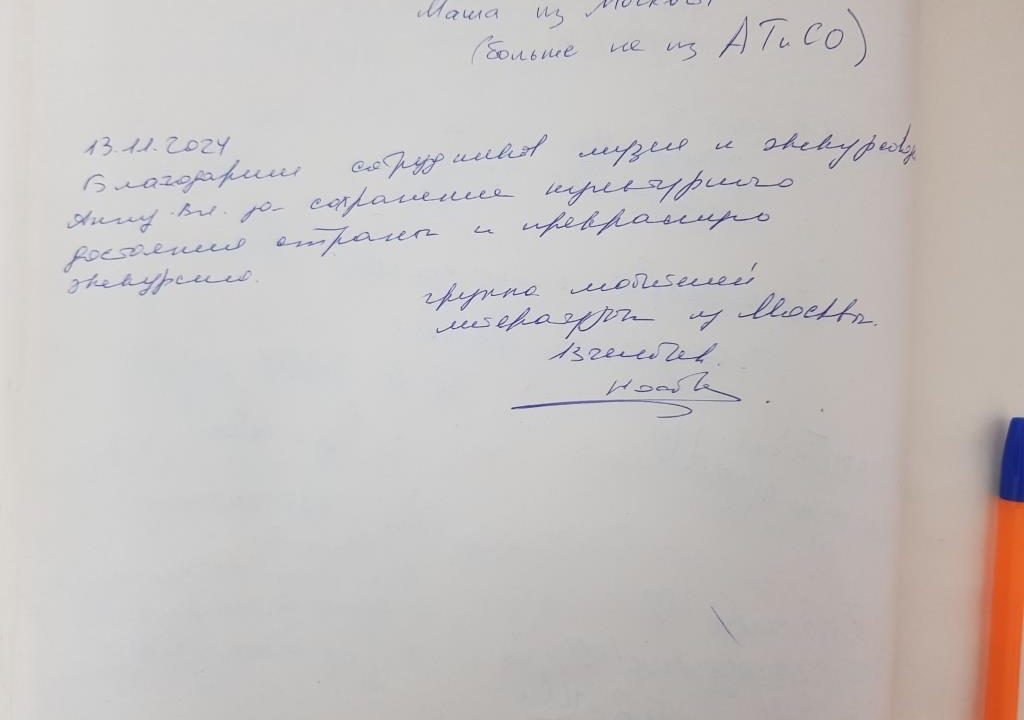 Маша из Москвы
(больше не из АТиСО)
13.11.2024
Благодарим сотрудников музея и экскурсовода
Анну Вл. за сохранение культурного
достояния страны и прекрасную
экскурсию.
группа любителей
литературы из Москвы.
13 человек.